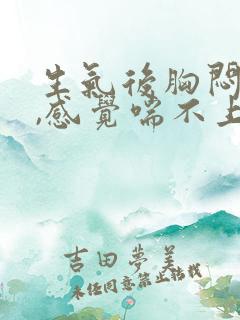 生氣後胸悶
,感覺喘不上
吉田夢美
未经同意禁止转载